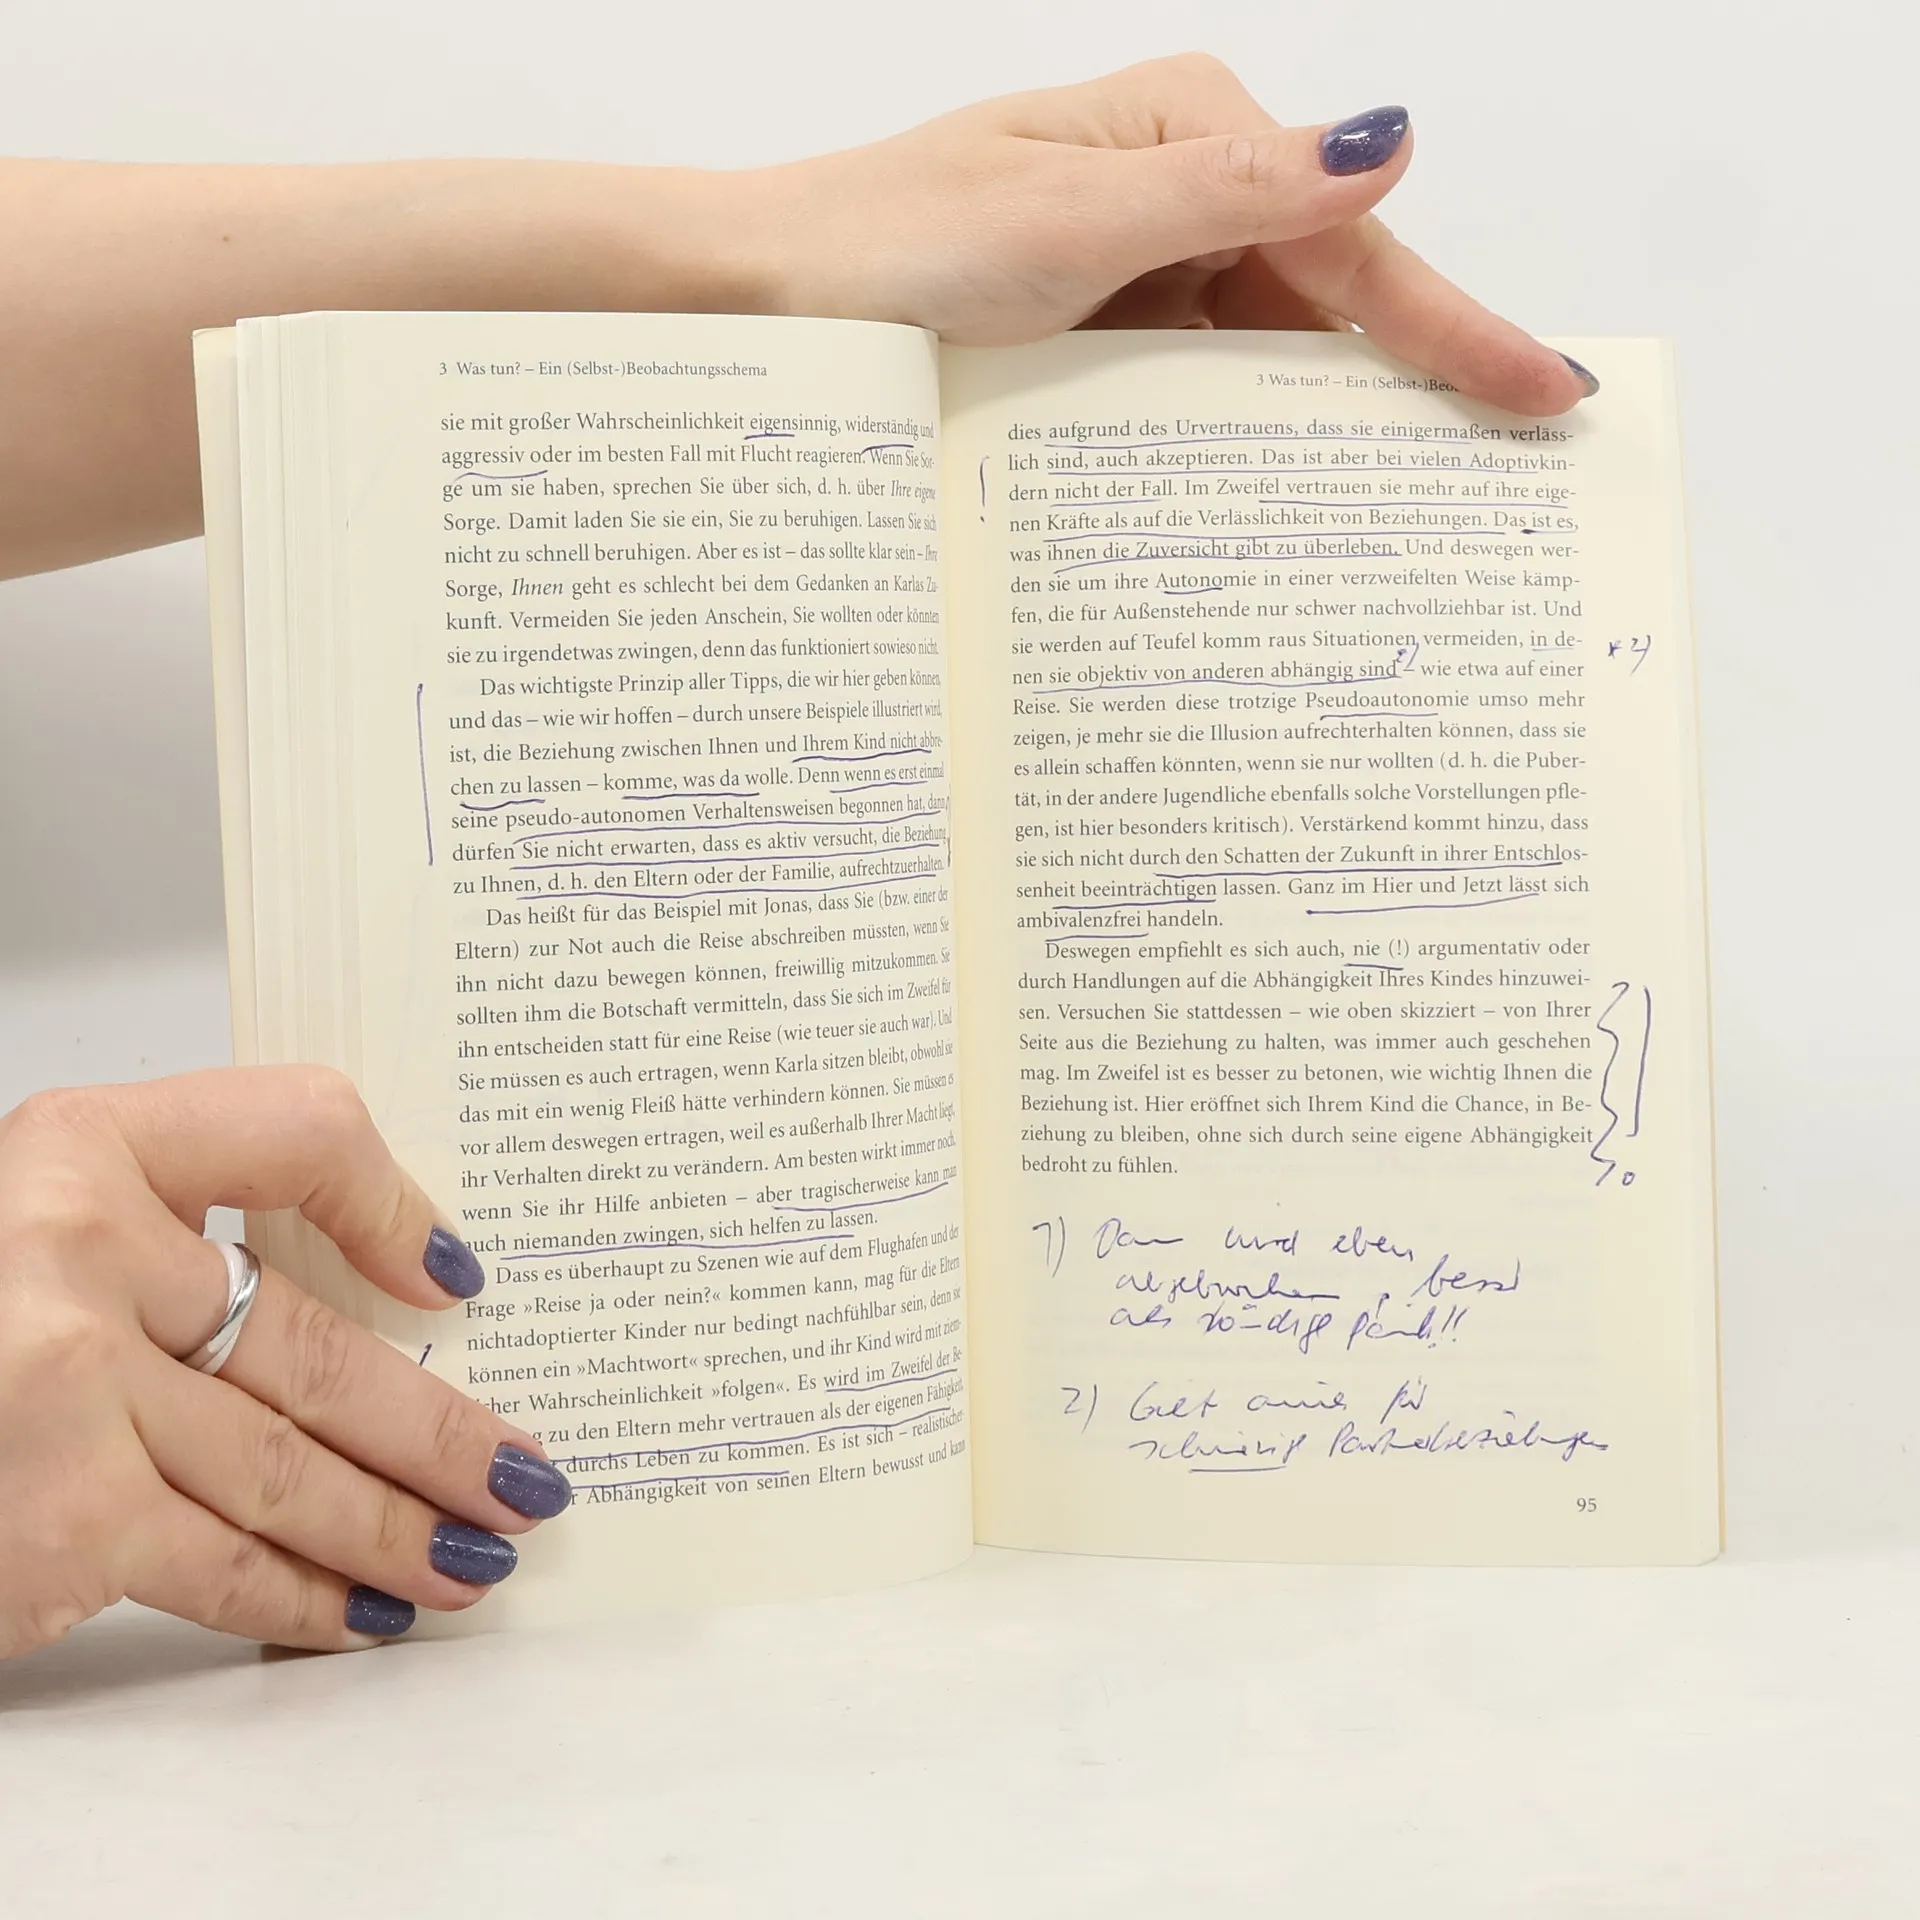 3 Was tun? – Ein (Selbst-)Beobachtungsschema
sie mit großer Wahrscheinlichkeit eigensinnig, widerständig und
aggressiv oder im besten Fall mit Flucht reagieren. Wenn Sie Sor-
ge um sie haben, sprechen Sie über sich, d. h. über Ihre eigene
Sorge. Damit laden Sie sie ein, Sie zu beruhigen. Lassen Sie sich
nicht zu schnell beruhigen. Aber es ist – das sollte klar sein – Ihre
Sorge, Ihnen geht es schlecht bei dem Gedanken an Karlas Zu-
kunft. Vermeiden Sie jeden Anschein, Sie wollten oder könnten
sie zu irgendetwas zwingen, denn das funktioniert sowieso nicht.
Das wichtigste Prinzip aller Tipps, die wir hier geben können,
und das – wie wir hoffen – durch unsere Beispiele illustriert wird,
ist, die Beziehung zwischen Ihnen und Ihrem Kind nicht abbre-
chen zu lassen – komme, was da wolle. Denn wenn es erst einmal
seine pseudo-autonomen Verhaltensweisen begonnen hat, dann
dürfen Sie nicht erwarten, dass es aktiv versucht, die Beziehung
zu Ihnen, d. h. den Eltern oder der Familie, aufrechtzuerhalten.
Das heißt für das Beispiel mit Jonas, dass Sie (bzw. einer der
Eltern) zur Not auch die Reise abschreiben müssten, wenn Sie
ihn nicht dazu bewegen können, freiwillig mitzukommen. Sie
sollten ihm die Botschaft vermitteln, dass Sie sich im Zweifel für
ihn entscheiden statt für eine Reise (wie teuer sie auch war). Und
Sie müssen es auch ertragen, wenn Karla sitzen bleibt, obwohl sie
das mit ein wenig Fleiß hätte verhindern können. Sie müssen es
vor allem deswegen ertragen, weil es außerhalb Ihrer Macht liegt,
ihr Verhalten direkt zu verändern. Am besten wirkt immer noch,
wenn Sie ihr Hilfe anbieten – aber tragischerweise kann man
auch niemanden zwingen, sich helfen zu lassen.
Dass es überhaupt zu Szenen wie auf dem Flughafen und der
Frage »Reise ja oder nein?« kommen kann, mag für die Eltern
nichtadoptierter Kinder nur bedingt nachfühlbar sein, denn sie
können ein »Machtwort« sprechen, und ihr Kind wird mit ziem-
cher Wahrscheinlichkeit »folgen«. Es wird im Zweifel der Be-
g zu den Eltern mehr vertrauen als der eigenen Fähigkeit,
durchs Leben zu kommen. Es ist sich – realistischer-
r Abhängigkeit von seinen Eltern bewusst und kann
3 Was tun? – Ein (Selbst-)Beo
dies aufgrund des Urvertrauens, dass sie einigermaßen verläss-
lich sind, auch akzeptieren. Das ist aber bei vielen Adoptivkin-
dern nicht der Fall. Im Zweifel vertrauen sie mehr auf ihre eige-
nen Kräfte als auf die Verlässlichkeit von Beziehungen. Das ist es,
was ihnen die Zuversicht gibt zu überleben. Und deswegen wer-
den sie um ihre Autonomie in einer verzweifelten Weise kämp-
fen, die für Außenstehende nur schwer nachvollziehbar ist. Und
sie werden auf Teufel komm raus Situationen vermeiden, in de-
nen sie objektiv von anderen abhängig sind – wie etwa auf einer
Reise. Sie werden diese trotzige Pseudoautonomie umso mehr
zeigen, je mehr sie die Illusion aufrechterhalten können, dass sie
es allein schaffen könnten, wenn sie nur wollten (d. h. die Puber-
tät, in der andere Jugendliche ebenfalls solche Vorstellungen pfle-
gen, ist hier besonders kritisch). Verstärkend kommt hinzu, dass
sie sich nicht durch den Schatten der Zukunft in ihrer Entschlos-
senheit beeinträchtigen lassen. Ganz im Hier und Jetzt lässt sich
ambivalenzfrei handeln.
Deswegen empfiehlt es sich auch, nie (!) argumentativ oder
durch Handlungen auf die Abhängigkeit Ihres Kindes hinzuwei-
sen. Versuchen Sie stattdessen – wie oben skizziert – von Ihrer
Seite aus die Beziehung zu halten, was immer auch geschehen
mag. Im Zweifel ist es besser zu betonen, wie wichtig Ihnen die
Beziehung ist. Hier eröffnet sich Ihrem Kind die Chance, in Be-
ziehung zu bleiben, ohne sich durch seine eigene Abhängigkeit
bedroht zu fühlen.
* 2)
1) Dann wird eben
als
2) Gilt auch für
schwierige Partnerbeziehungen
95